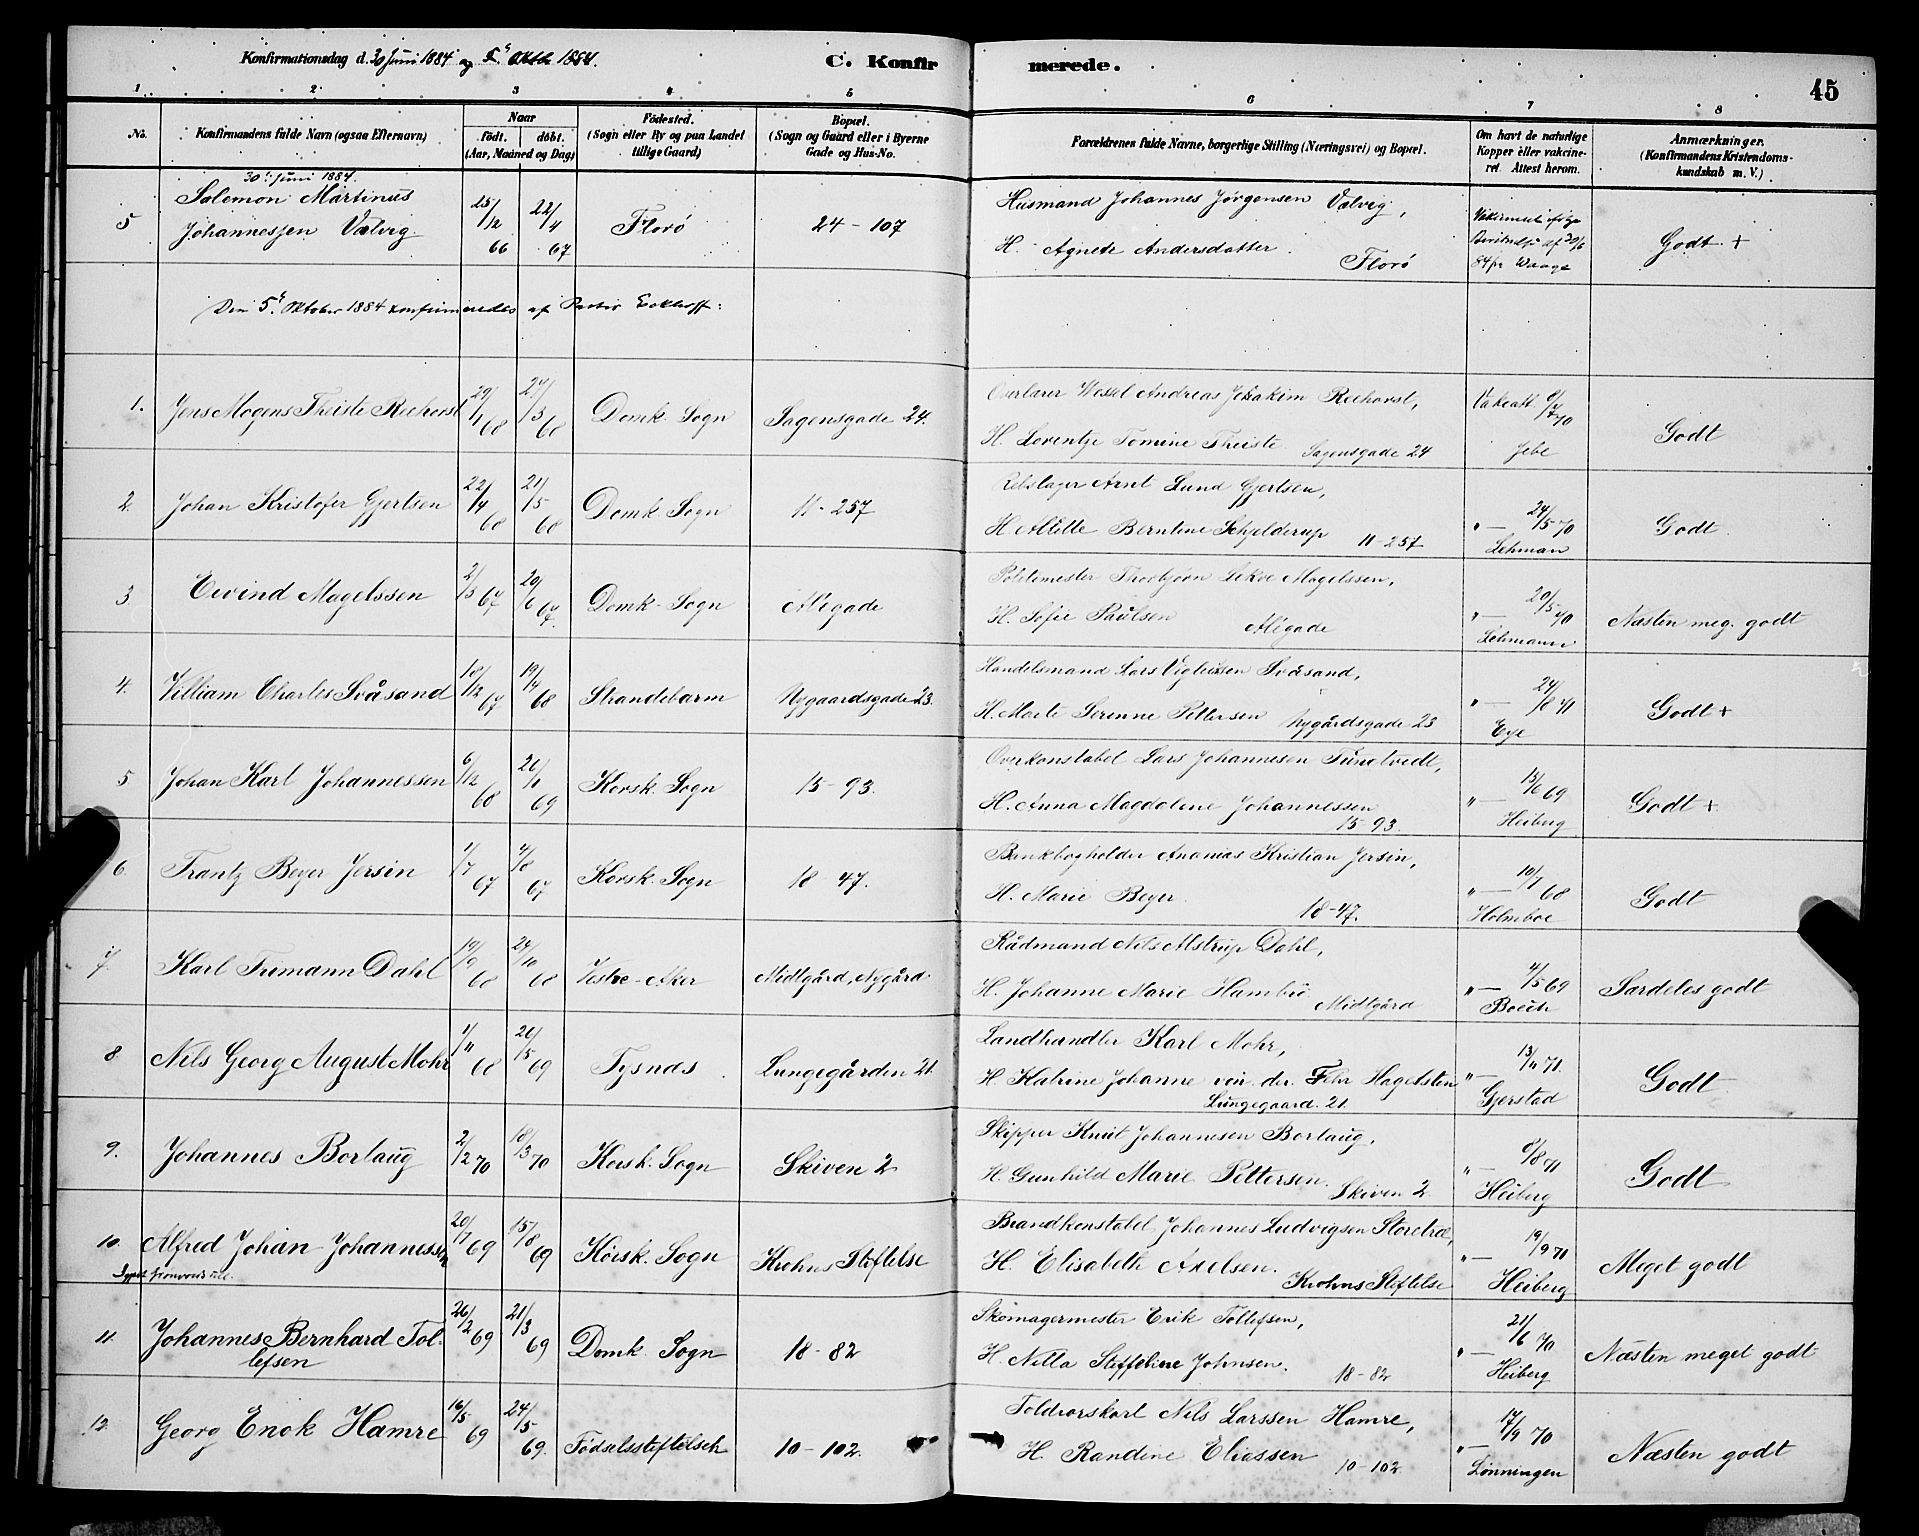 Konfirmationsdag d. 30 Juni 1884 og 5 Oktb 1884.
C. Konfirmerede.
45
1. 2 3 4 5 6 7 8
No.
Konfirmandens fulde Navn (ogsaa Efternavn)
Naar
født. døbt.
(Aar, Maaned og Dag)
Födested.
(Sogn eller By og paa Landet
tillige Gaard)
Bopæl.
(Sogn og Gaard eller i Byerne
Gade og Hus-No.
Forældrenes fulde Navne, borgerlige Stilling (Næringsvei) og Bopæl.
Om havt de naturlige
Kopper eller vakcine-
ret. Attest herom.
Anmærkninger.
(Konfirmandens Kristendoms-
kundskab m. V.)
30. Juni 1884.
5 Salomon Martinus
Johannessen Vælvig 25/12 66 22/4 67 Florö 24-107
Husmand Johannes Jørgensen Vælvig,
H. Agnete Andersdatter. Florö
84 fr Waage
Godt. +
Den 5. Oktober 1884 konfirmeredes af Pastor Eckhoff:
1. Jens Mogens Theiste Reehorst 29/1 68 27/3 68 Domk. Sogn Sagensgade 24.
Overlærer Wessel Andreas Joakim Reehorst,
H. Lorentze Tomine Theiste Sagensgade 24
Vakcatt. 8/7 70
Jebe
Godt
2. Johan Kristofer Gjertsen 22/4 68 21/5 68 Domk. Sogn 11-257
Rebslager Arnt Lund Gjertsen,
H. Alette Berntine Schjelderup 11-257
"— 24/5 70
Lehman
Godt.
3. Eivind Magelssen 2/5 67 20/6 67. Domk. Sogn Allégade
Politimester Thorbjørn Lekve Magelssen,
H. Sofie Paulsen Allégade
"— 20/5 70
Lehmann
Næsten meg. godt
4. Villiam Charles Svåsand 18/12 67 19/4 68 Strandebarm Nygaardsgade 23.
Handelsmand Lars Vigleiksen Svåsand,
H. Marte Serenne Pettersen Nygårdsgade 23
"— 24/8 71
Eye
Godt +
5 Johan Karl Johannessen 6/12 68 21/1 69 Korsk. Sogn 15-93.
Overkonstabel Lars Johannesen Tunetvedt,
H. Anna Magdalene Johannessen
15-93.
"— 13/6 69
Heiberg
Godt +
6. Frantz Beyer Jersin 1/7 67 4/8 67 Korsk. Sogn 18-47.
Bankbogholder Ananias Kristian Jersin,
H. Marie Beyer 18-47.
"— 10/7 68
Holmboe
Godt
7. Karl Frimann Dahl 19/9 68 24/10 68 Vestre-Aker Midtgård, Nygård.
Rådmand Nils Alstrup Dahl,
H. Johanne Marie Hambro Midtgård
"— 4/5 69
Boeck
Særdeles godt
8 Nils Georg August Mohr 1/11 68 26/5 69 Tysnæs Lungegården 21.
Landhandler Karl Mohr,
H. Katrine Johanne von der Fehr Hagelsten
Lungegaard. 21.
"— 13/11 71
Gjerstad
Godt
9. Johannes Borlaug 2/2 70 18/3 70 Korsk. Sogn Skiven 2
Skipper Knut Johannesen Borlaug,
H. Gunhild Marie Pettersen. Skiven 2.
"— 8/8 71
Heiberg
Godt
10. Alfred Johan Johannessen 20/7 69 15/8 69 Korsk. Sogn Krohns Stiftelse
Brandkonstabel Johannes Ludvigsen Storetræ,
H. Elisabeth Axelsen. Krohns Stiftelse
"— 19/9 71
Heiberg
Meget godt
11. Johannes Bernhard Tol-
lefsen 26/2 69 21/3 69 Domk. Sogn 18-82
Skomagermester Erik Tollefsen,
H. Nilla Steffeline Johnsen. 18-82
"— 21/6 70
Heiberg
Næsten meget godt
12. Georg Enok Hamre 16/5 69 24/5 69. Fødselsstiftelsen 10-102.
Toldrorskarl Nils Larssen Hamre,
H. Randine Eliassen 10-102
"— 17/9 70
Lønningen
Næsten godt